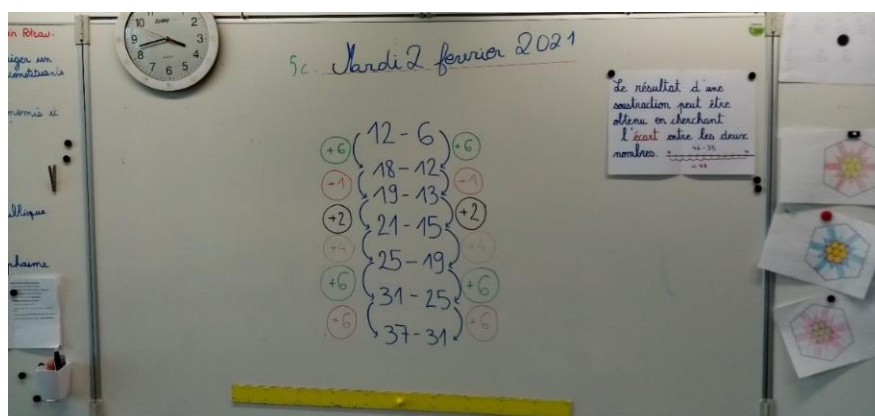 5c. Mardi 2 fevrier 2021
12 - 6
+6 +6
18 - 12
+1 +1
19 - 13
+2 +2
21 - 15
+4 +4
25 - 19
+6 +6
31 - 25
+6 +6
37 - 31
Le résultat d'une
soustraction peut être
obtenu en cherchant
l'écart entre les deux
nombres. 46-35
12
1
2
3
4
5
6
7
8
9
10
11